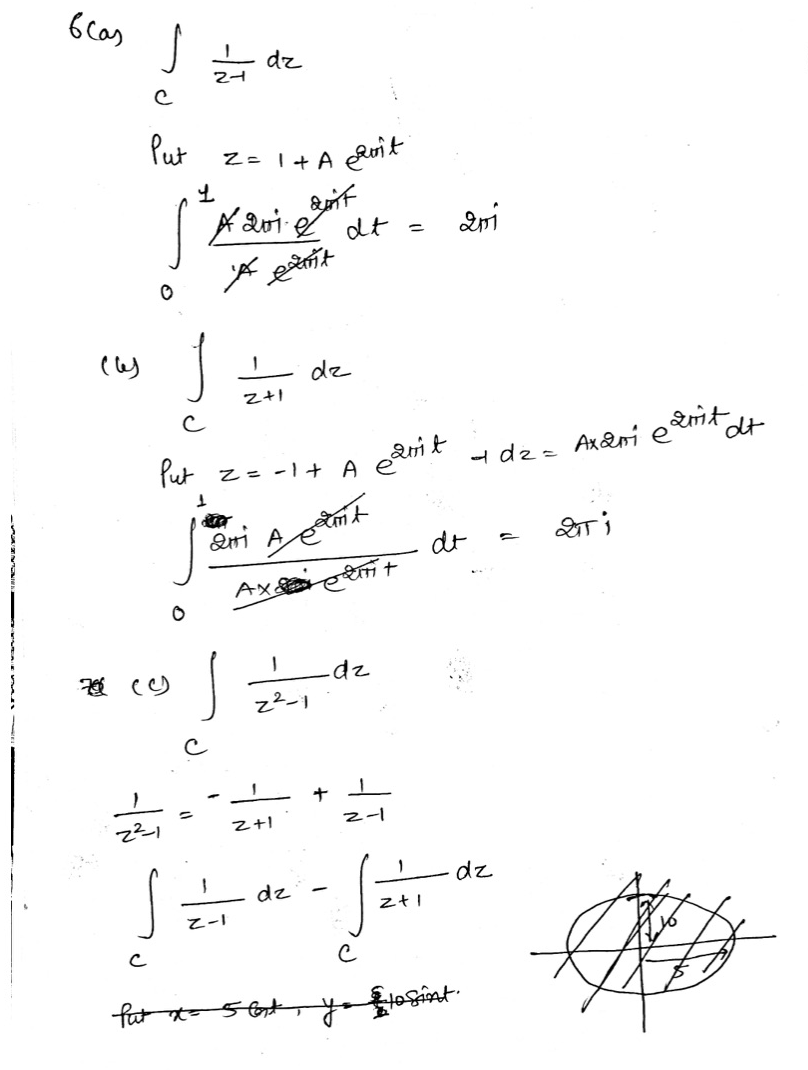 6(a) ∫_C 1/(z-1) dz
Put z = 1 + A e^{2πit}
∫_0^1 A 2πi e^{2πit} / A e^{2πit} dt = 2πi
(b) ∫_C 1/(z+1) dz
Put z = -1 + A e^{2πit} → dz = A×2πi e^{2πit} dt
∫_0^1 2πi A e^{2πit} / A× e^{2πit} dt = 2πi
(c) ∫_C 1/(z²-1) dz
1/(z²-1) = - 1/(z+1) + 1/(z-1)
∫_C 1/(z-1) dz - ∫_C 1/(z+1) dz
10
5
Put x = 5 Cost, y = 10 Sint.